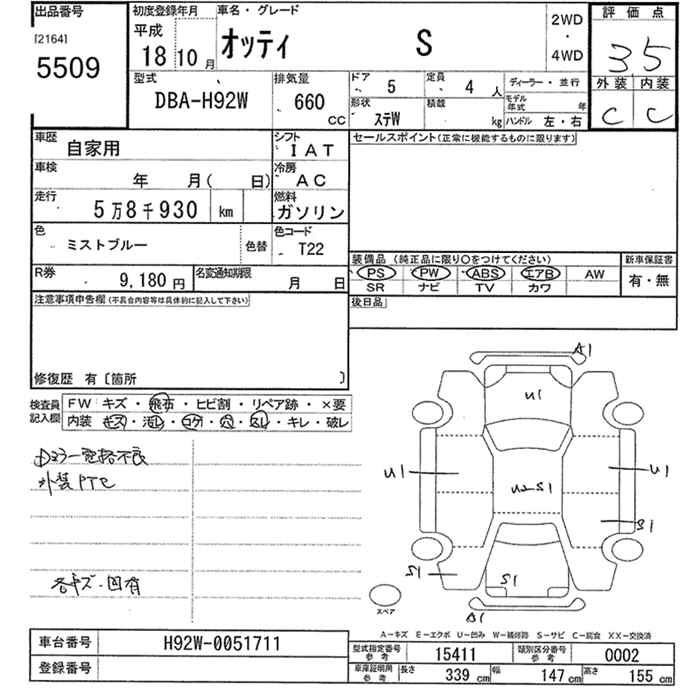 出品番号
[2164]
5509
初度登録年月
平成
18 10 月
車名・グレード
オッティ S
2WD
・
4WD
評価点
3.5
外装 内装
C C
型式
DBA-H92W
排気量
660 CC
ドア 5
定員 4 人
ディーラー・並行
形状 ステW
積載 kg
モデル年式 年
ハンドル 左・右
車歴 自家用
シフト IAT
セールスポイント(正常に機能するものに限ります)
車検 年 月( 日)
冷房 AC
走行 5万8千930 km
燃料 ガソリン
色 ミストブルー
色替
色コード T22
装備品(純正品に限り〇をつけてください)
新車保証書
PS PW ABS エアB AW
有・無
SR ナビ TV カワ
R券 9,180 円
名変通知期限 月 日
後日品
注意事項申告欄(不具合内容等は具体的に記入して下さい)
修復歴 有〔箇所 〕
検査員記入欄
FW キズ・飛石・ヒビ割・リペア跡・×要
内装 キズ・汚レ・コゲ・穴・スレ・キレ・破レ
Dミラー電格不良
外装PTC
各キズ・凹有
A1
U1
U1
U1
U2 S1
B1
S1
S1
スペア
A-キズ E-エクボ U-凹み W-補修跡 S-サビ C-腐食 XX-交換済
車台番号 H92W-0051711
登録番号
型式指定番号 参考 15411
類別区分番号 参考 0002
車庫証明用 参考 長さ 339 cm 幅 147 cm 高さ 155 cm